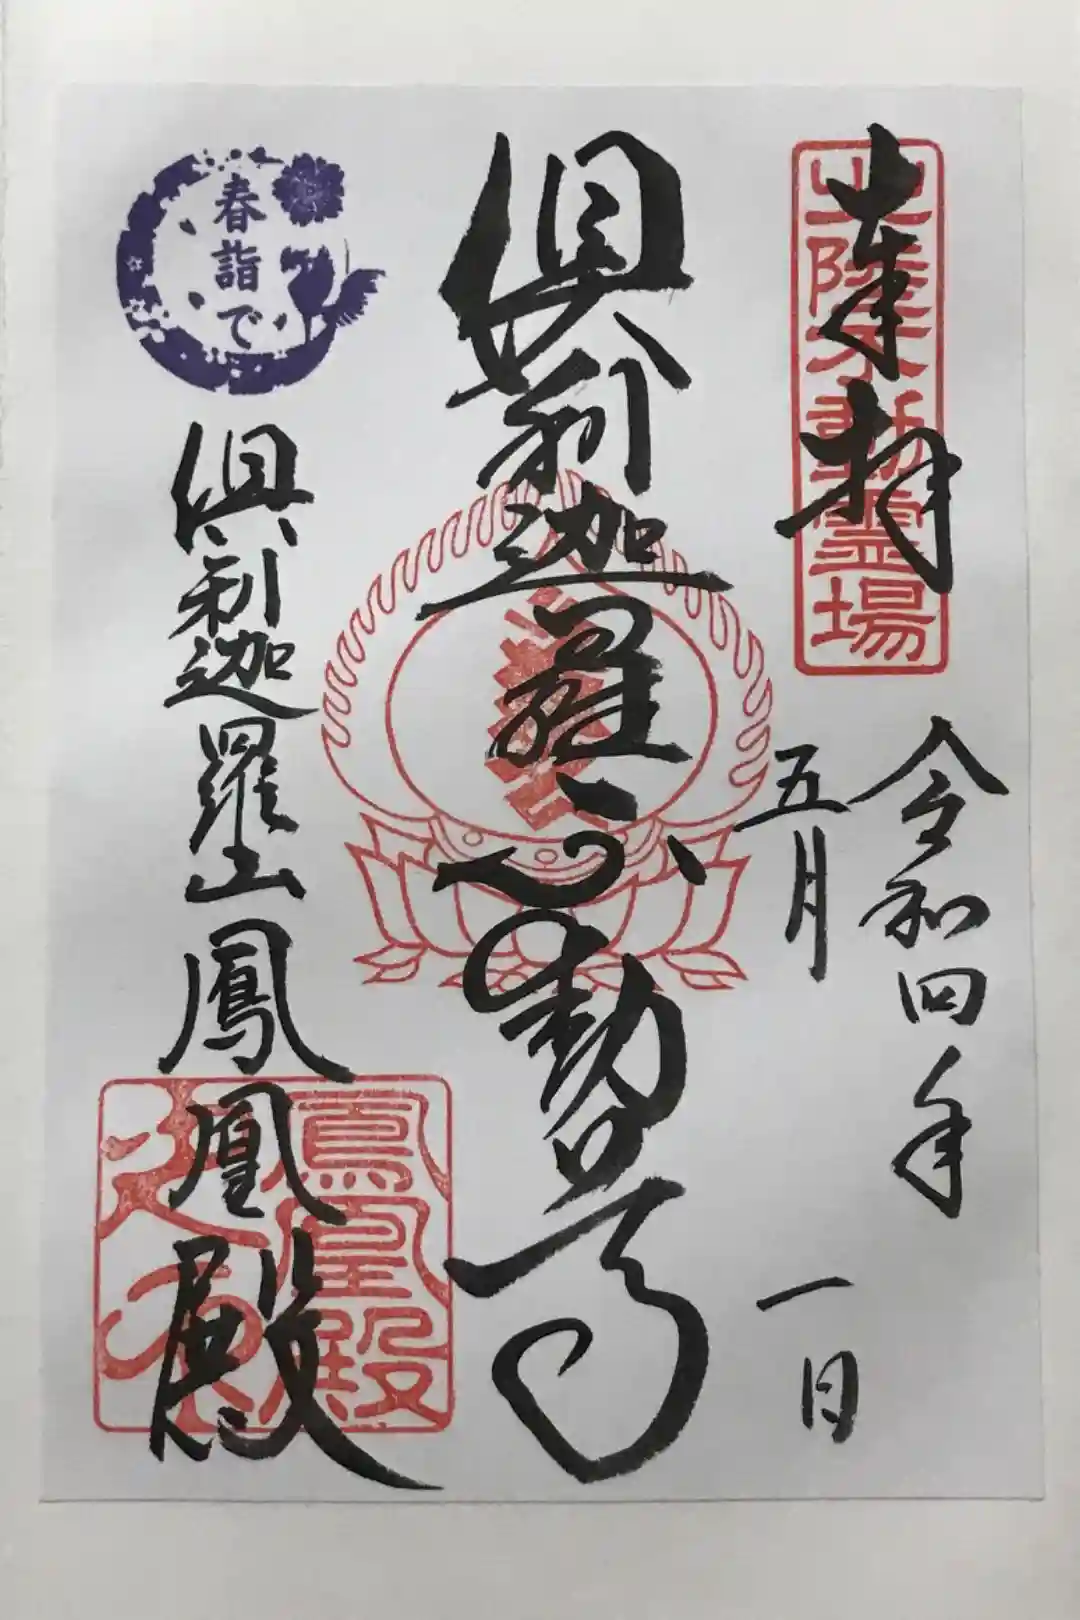 奉拝
北陸不動霊場
令和四年
五月
一日
倶利迦羅不動尊
春詣で
倶利迦羅山
鳳凰殿
鳳凰殿